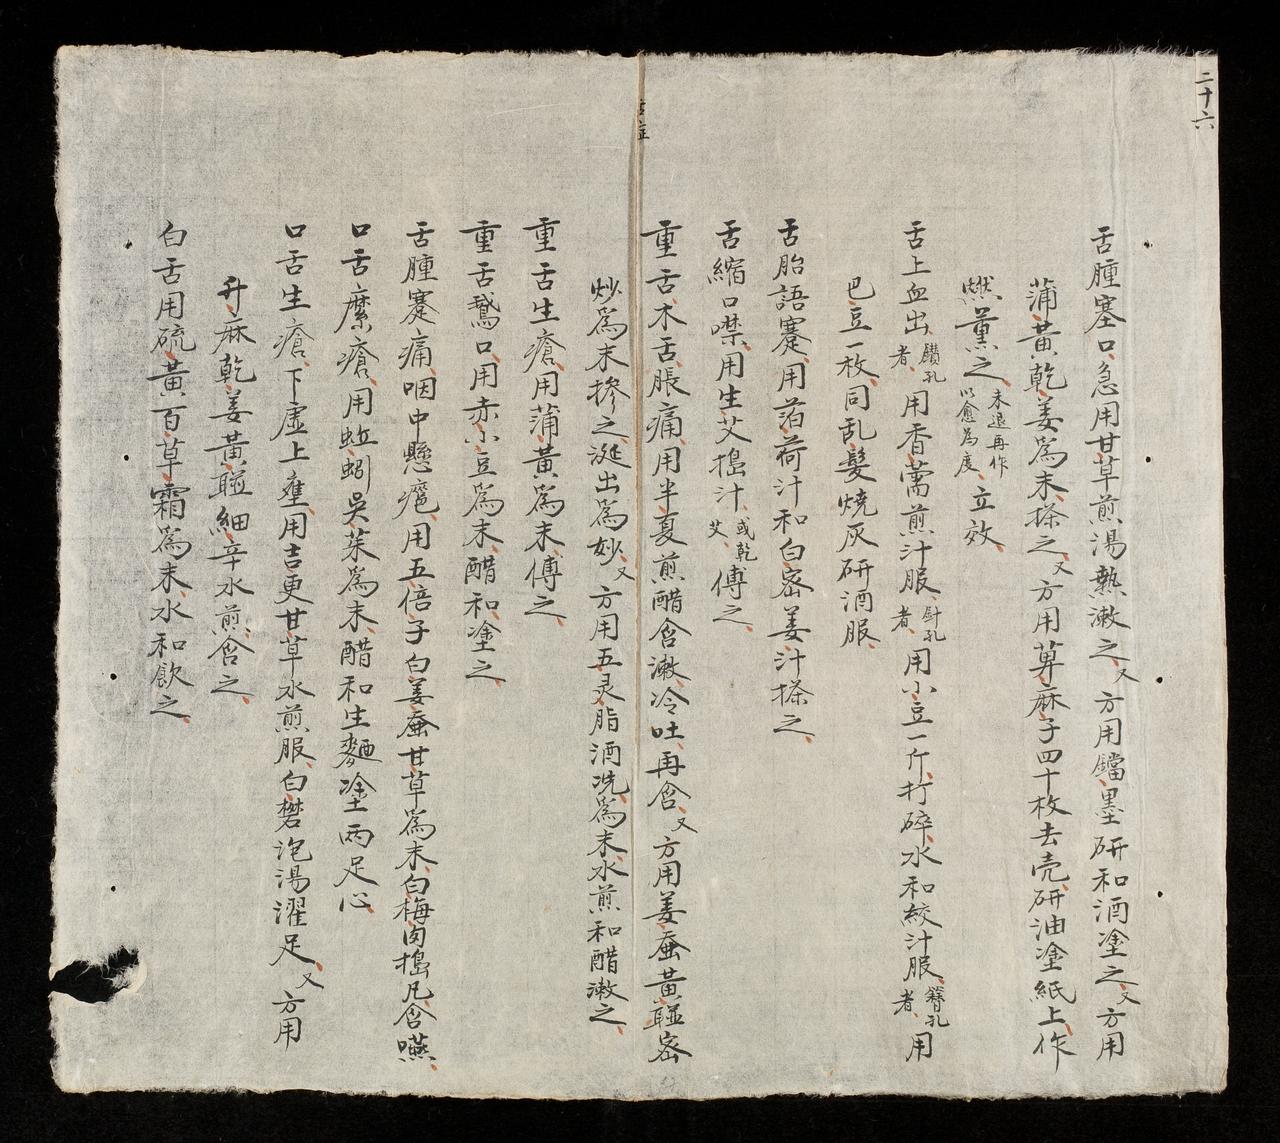 二十六
舌腫塞口急用甘草煎湯熱漱之又方用鐺墨研和酒塗之又方用
蒲黃乾姜爲末搽之又方用萆麻子四十枚去壳研油塗紙上作
燃薰之未退再作以愈爲度立效
舌上血出鑽孔者用香薷煎汁服針孔者用小豆一斤打碎水和絞汁服簪孔者用
巴豆一枚同乱髮燒灰研酒服
舌胎語蹇用萡荷汁和白宻姜汁搽之
舌縮口噤用生艾搗汁或乾艾傅之
舌症
重舌木舌脹痛用半夏煎醋含漱冷吐再含又方用姜蚕黃𮔉宻
炒爲末摻之涎出爲妙又方用五灵脂酒洗爲末水煎和醋漱之
重舌生瘡用蒲黃爲末傅之
重舌鵞口用赤小豆爲末醋和塗之
舌腫蹇痛咽中懸癰用五倍子白姜蚕甘草爲末白梅肉搗凡含嚥
口舌糜瘡用蚯蚓吳茱爲末醋和生麵塗兩足心
口舌生瘡下虛上壅用吉更甘草水煎服白礬泡湯濯足又方用
升麻乾姜黃𮔉細辛水煎含之
白舌用硫黃百草霜爲末水和飮之